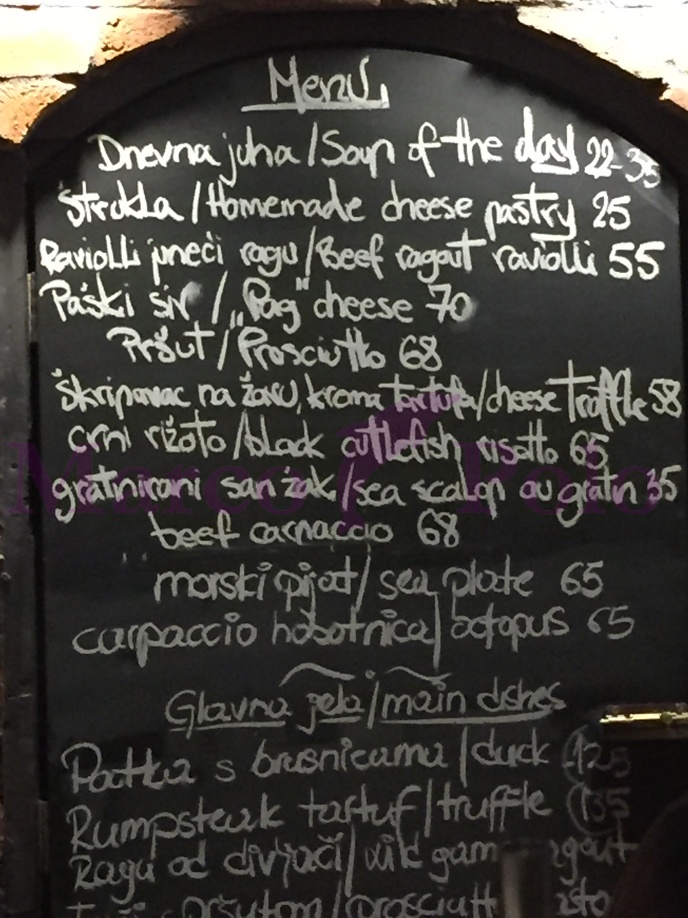 Menu
Dnevna juha / Soup of the day 22-35
Štrukla / Homemade cheese pastry 25
Raviolli juneći ragu / Beef ragout raviolli 55
Paški sir / „Pag" cheese 70
Pršut / Prosciutto 68
škripavac na žaru, krema tartufa / cheese truffle 58
crni rižoto / black cuttlefish risotto 65
gratinirani san žak / sea scalop au gratin 35
beef carpaccio 68
morski pijat / sea plate 65
carpaccio hobotnica / octopus 65
Glavna jela / main dishes
Patka s brusnicama / duck 125
Rumpsteak tartuf / truffle 135
Ragu od divljači / wild game
pršutom / prosciutt
Marco Polo